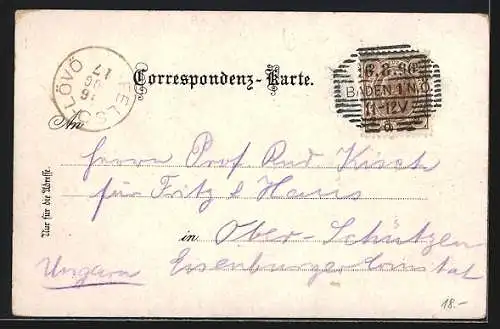 FELSŐ LÖVŐ
96
17
Correspondenz-Karte.
6.8.96
BADEN 1 N.Ö.
11-12V
An
Herrn Prof Rud Kisch
für Fritz & Hans
in Ober-Schützen
Ungarn Eisenburger Comitat
Nur für die Adresse.
18.-